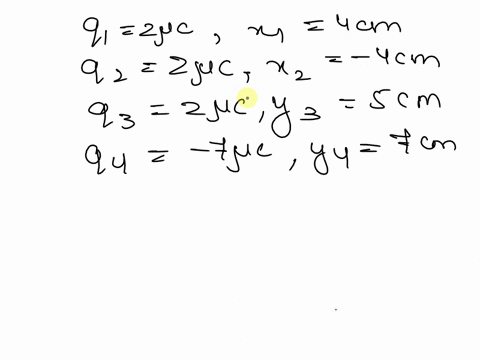 q1 = 2μc, x1 = 4cm
q2 = 2μc, x2 = -4cm
q3 = 2μc, y3 = 5cm
q4 = -7μc, y4 = 7cm